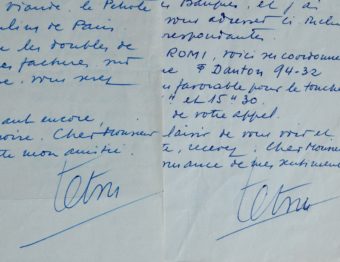 viande. le Pétrole
lins de Paris.
les doubles de
es factures
vous serez
ant encore,
Cher Monsieur
mon amitié.
Tetru
Banques, et j'ai
vous adresser ci inclus
respondante.
ROMI, voici ses coordonnées
Danton 94-32
favorable pour le toucher
" et 15"30.
de votre appel.
laisir de vous voir et
te, recevez, Cher Monsieur
rance de mes sentiments